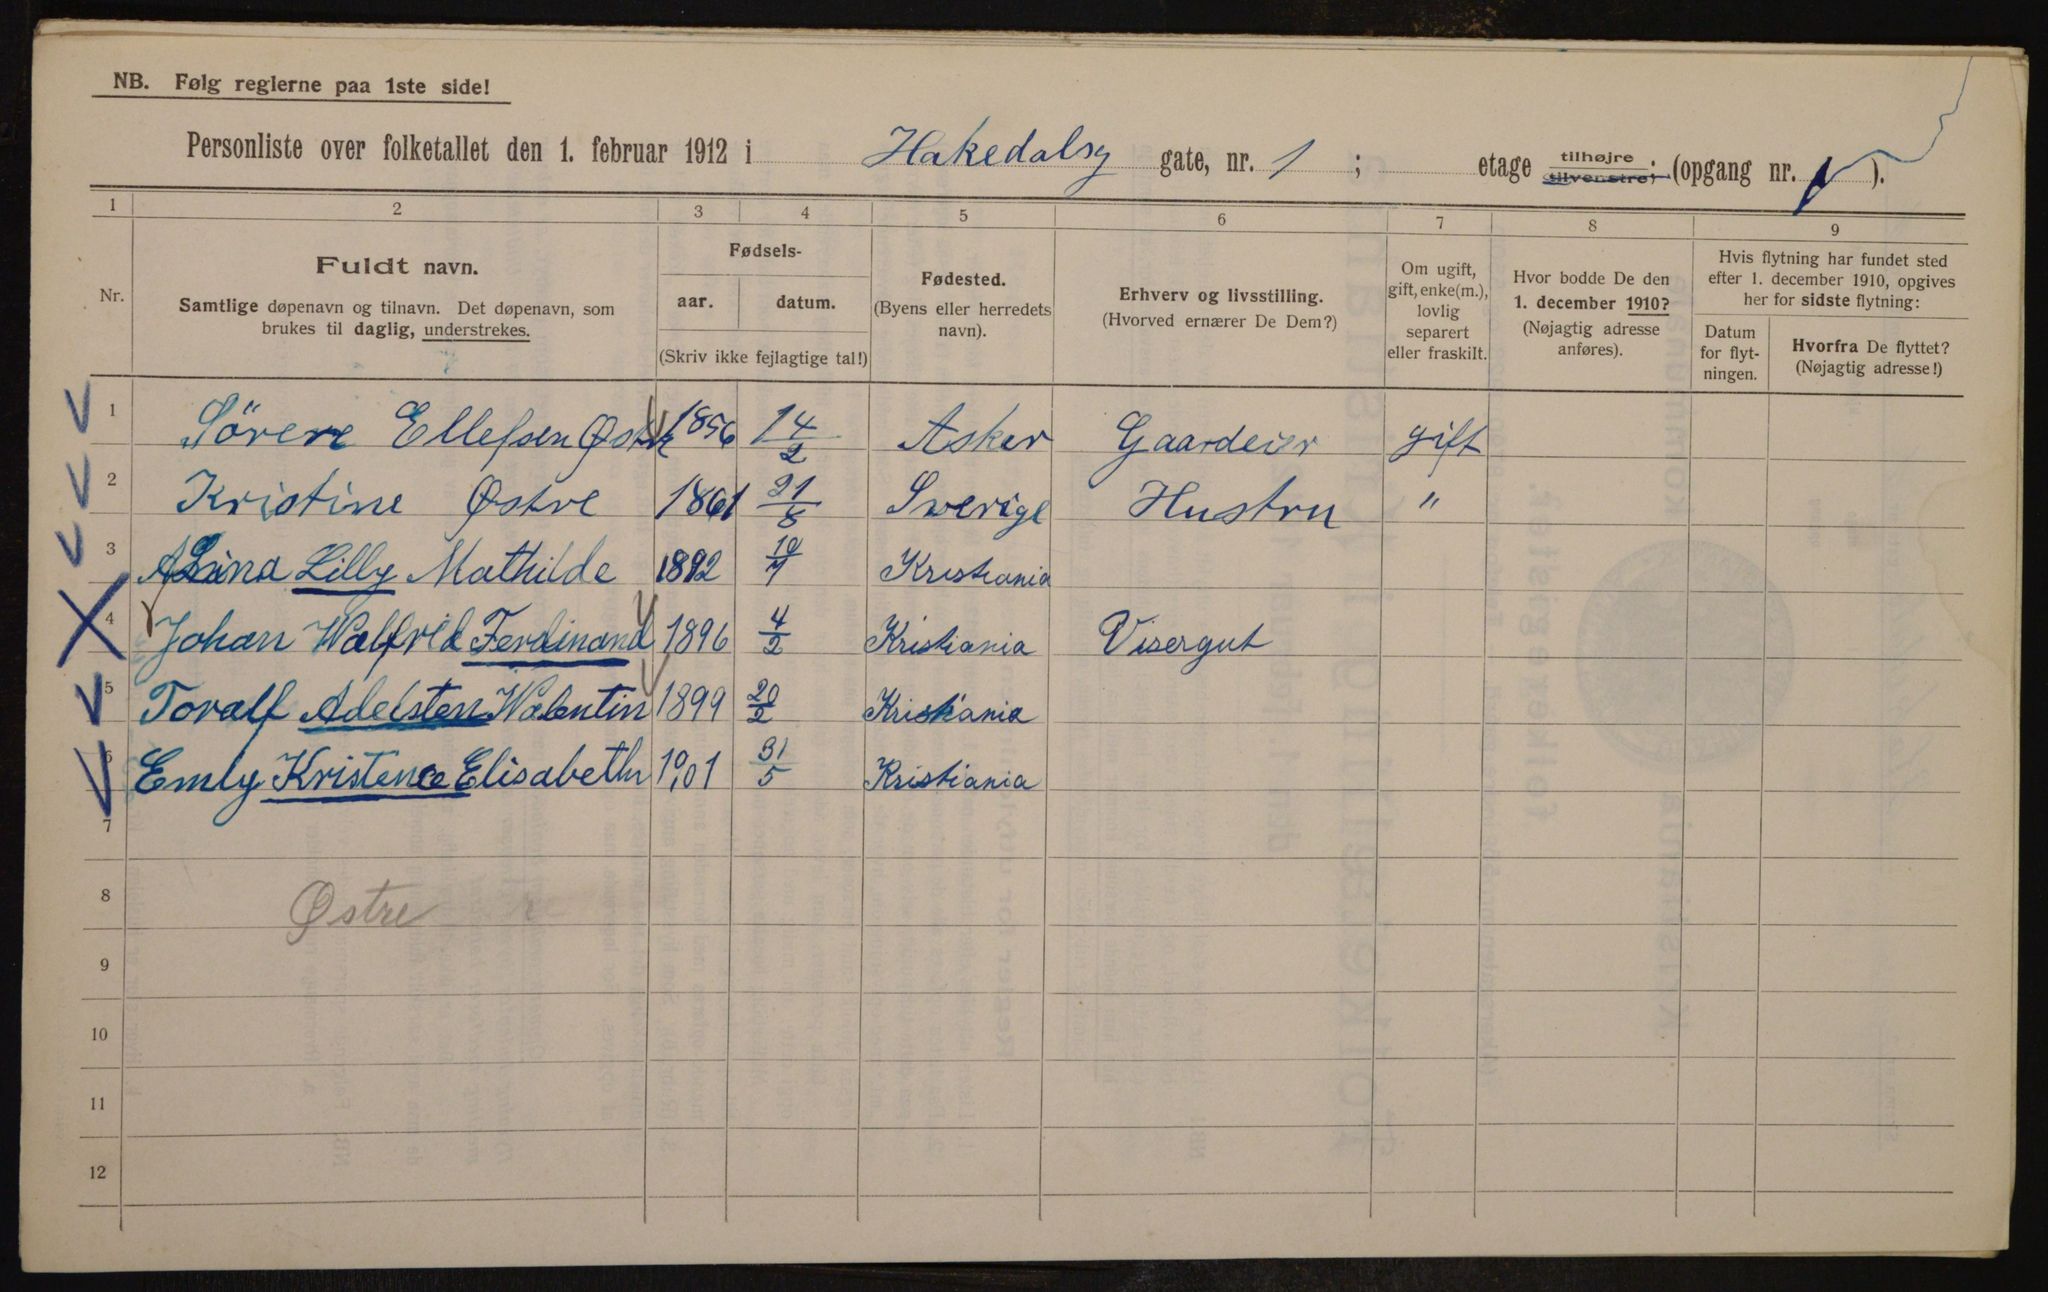 NB. Følg reglerne paa 1ste side!
Personliste over folketallet den 1. februar 1912 i Hakedalsg gate, nr. 1 ; etage tilhøjre tilvenstre; (opgang nr. ).
1 2 3 4 5 6 7 8 9
Nr.
Fuldt navn.
Samtlige døpenavn og tilnavn. Det døpenavn, som
brukes til daglig, understrekes.
Fødsels-
aar. datum.
(Skriv ikke fejlagtige tal!)
Fødested.
(Byens eller herredets
navn).
Erhverv og livsstilling.
(Hvorved ernærer De Dem?)
Om ugift,
gift, enke(m.),
lovlig
separert
eller fraskilt.
Hvor bodde De den
1. december 1910?
(Nøjagtig adresse
anføres).
Hvis flytning har fundet sted
efter 1. december 1910, opgives
her for sidste flytning:
Datum
for flyt-
ningen.
Hvorfra De flyttet?
(Nøjagtig adresse!)
1 Sörere Ellefsen 1856 14/2 Asker Gaardeier gift
2 Kristine Østre 1861 21/8 Swerige Hustru "
3 Lilly Mathilde 1892 Kristiania
4 Johan Walfrid Ferdinand 1896 4/2 Kristiania Visergut
5 Toralf Adelsten Walentin 1899 20/2 Kristiania
6 Emly Kristence Elisabeth 1901 31/5 Kristiania
7
8 Østre
9
10
11
12